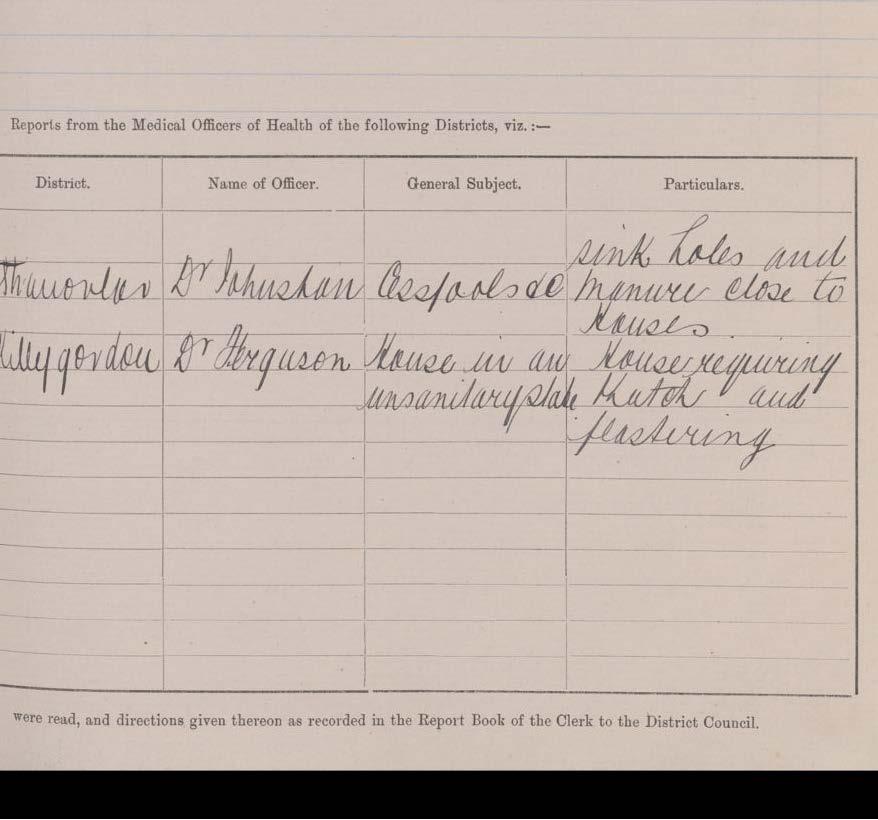 Reports from the Medical Officers of Health of the following Districts, viz. :—
District. Name of Officer. General Subject. Particulars.
sink holes and
Dr Johnston Cesspools &c manure close to
Houses
Killygordon Dr Ferguson House in an House requiring
unsanitary state thatch and
plastering
were read, and directions given thereon as recorded in the Report Book of the Clerk to the District Council.